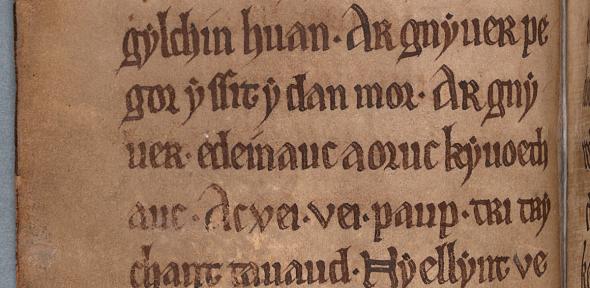 gylchin huan. Ar gnyuer pe
gor y ssit y dan mor. Ar gny
uer. edeinauc a oruc kyuoeth
auc. Ac vei. vei. paup. tri try
chant tauaud. Ny ellynt ve